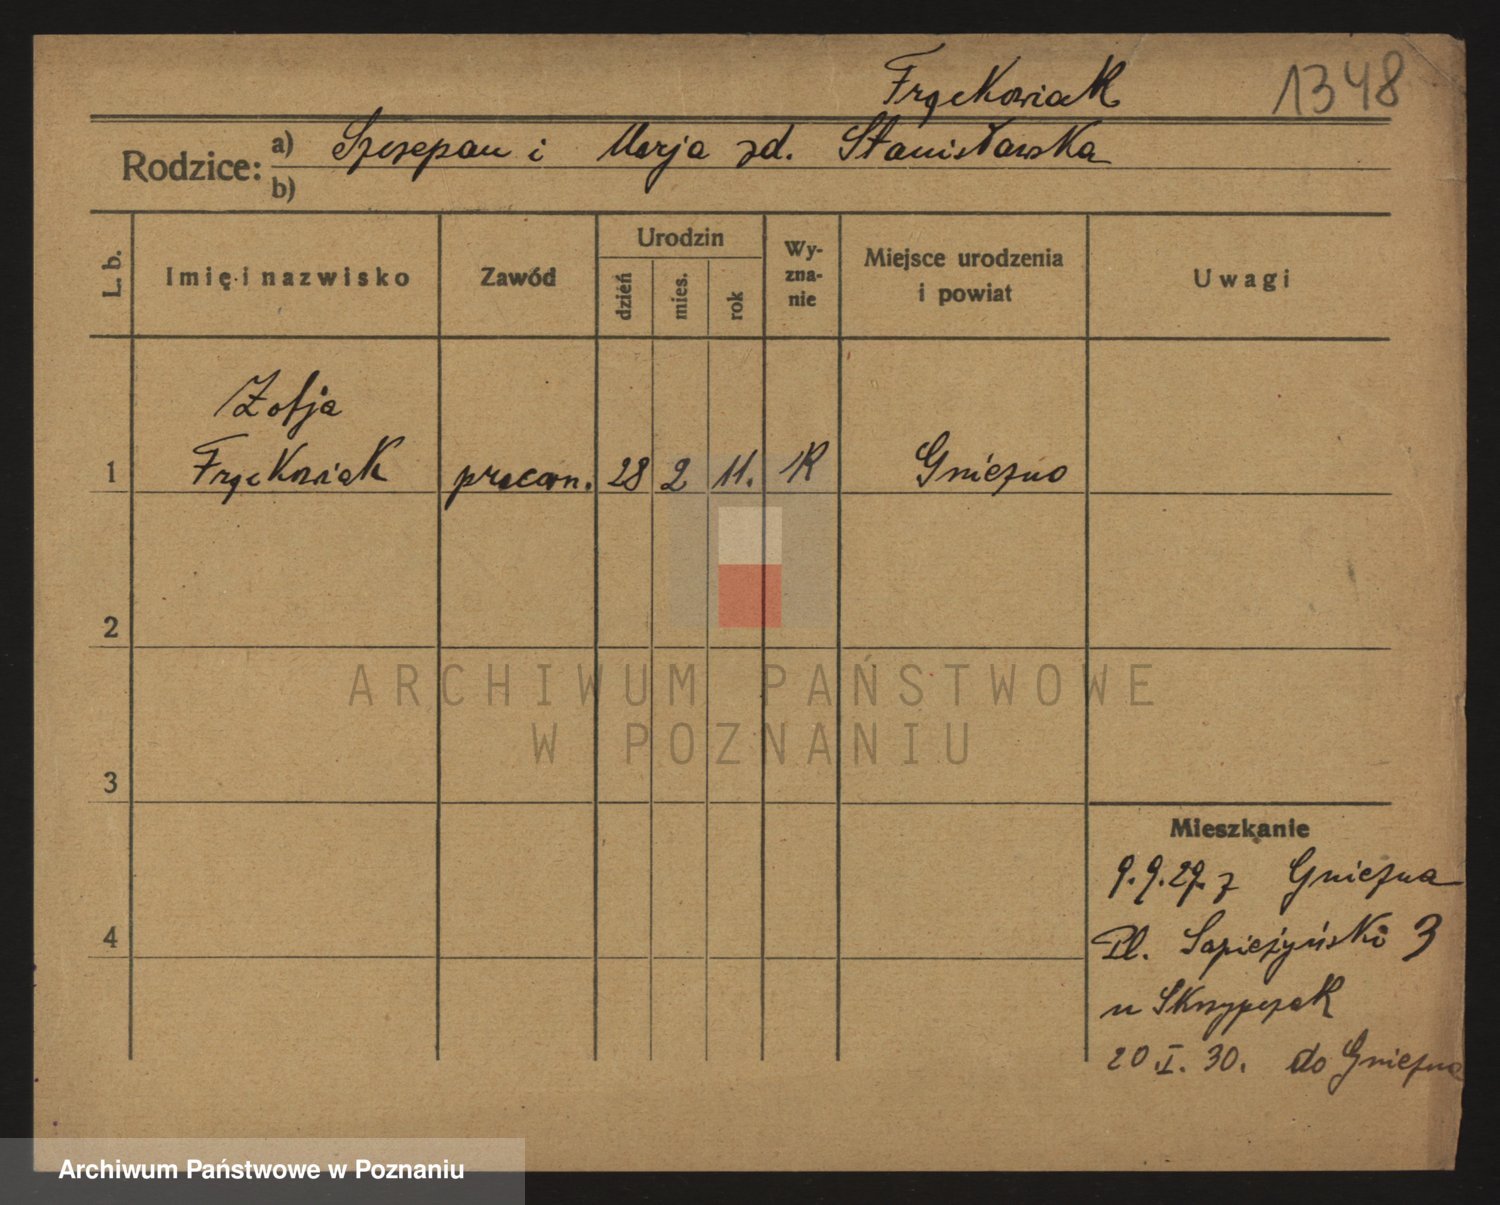 Frąckowiak 1348
Rodzice: a) Szczepan i Marja zd. Stanisławska
b)
L. b. Imię i nazwisko Zawód Urodzin dzień mies. rok Wy-zna-nie Miejsce urodzenia i powiat Uwagi
Zofja
1 Frąckowiak pracown. 28 2 11. R Gniezno
2
ARCHIWUM PAŃSTWOWE
W POZNANIU
3
Mieszkanie
9.9.29. z Gniezna
4 Pl. Sapieżyński 3
u Skrzypczak
20.I.30. do Gniezna
Archiwum Państwowe w Poznaniu